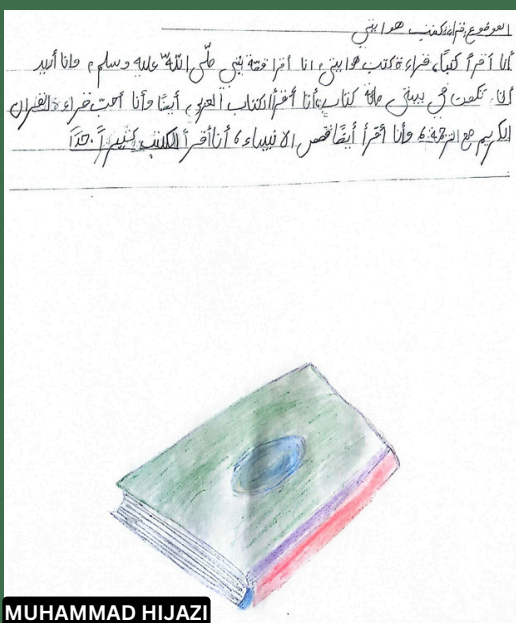 الموضوع: قراءة كتب هوايتي
أنا أقرأ كتباً، قراءة كتب هوايتي، انا أقرا قصة نبي صلّى اللّه عليه وسلم، وانا أريد
أن تكون في بيتي مائة كتاب، أنا أقرأ الكتاب العربي أيضًا وأنا أحب قراءة القران
الكريم مع وأنا أقرأ أيضًا قصص الانبياء، أنا أقرأ الكتب كثيراً جدًا
MUHAMMAD HIJAZI